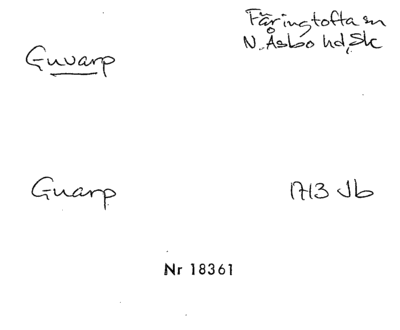 Färingtofta sn
N. Åsbo hd, Sk
Guvarp
Guarp
1713 Jb
Nr 18361